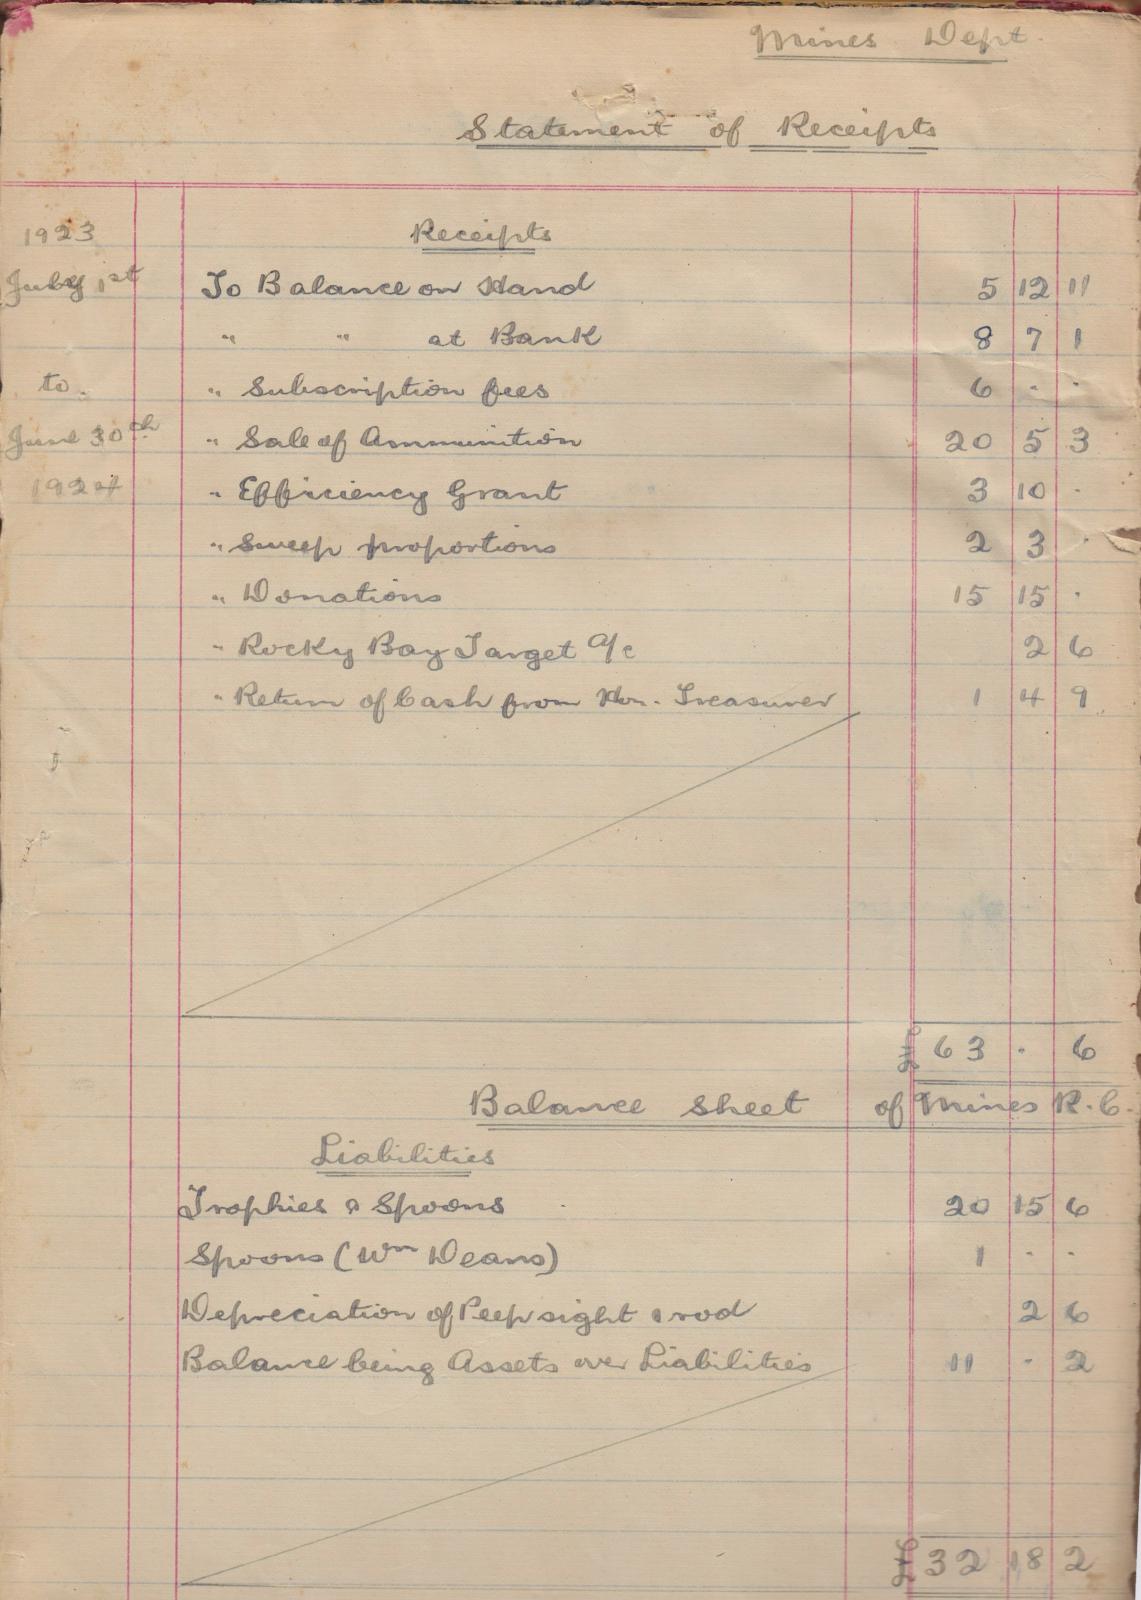 Mines Dept.
Statement of Receipts
1923 Receipts
July 1st To Balance on Hand 5 12 11
" " at Bank 8 7 1
to. " Subscription fees 6 . .
June 30th " Sale of Ammunition 20 5 3
1924 " Efficiency Grant 3 10 .
" Sweep proportions 2 3 .
" Donations 15 15 .
" Rocky Bay Target A/c 2 6
" Return of Cash from Hon. Treasurer 1 4 9
£ 63 . 6
Balance sheet of Mines R.C.
Liabilities
Trophies & Spoons 20 15 6
Spoons (Wm Deans) 1 . .
Depreciation of Peep sight & rod 2 6
Balance being Assets over Liabilities 11 . 2
£ 32 18 2